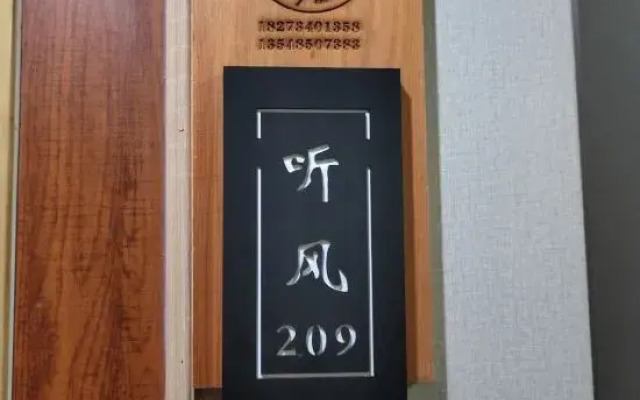 18273401358
13548507383
听
风
209